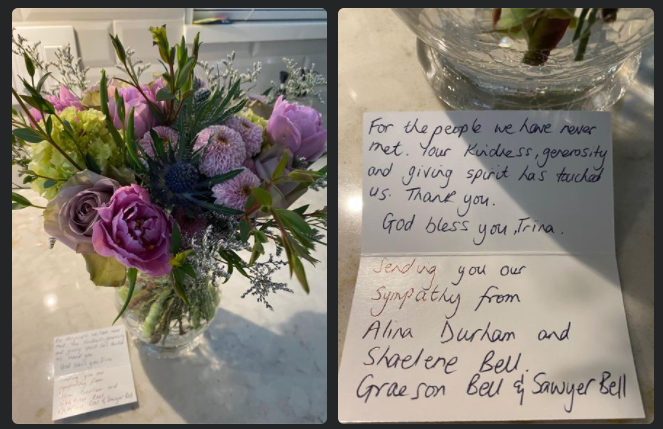 For the people we have never
met. Your kindness, generosity
and giving spirit has touched
us. Thank you.
God bless you, Trina.
Sending you our
Sympathy from
Alina Durham and
Shaelene Bell.
Graeson Bell & Sawyer Bell